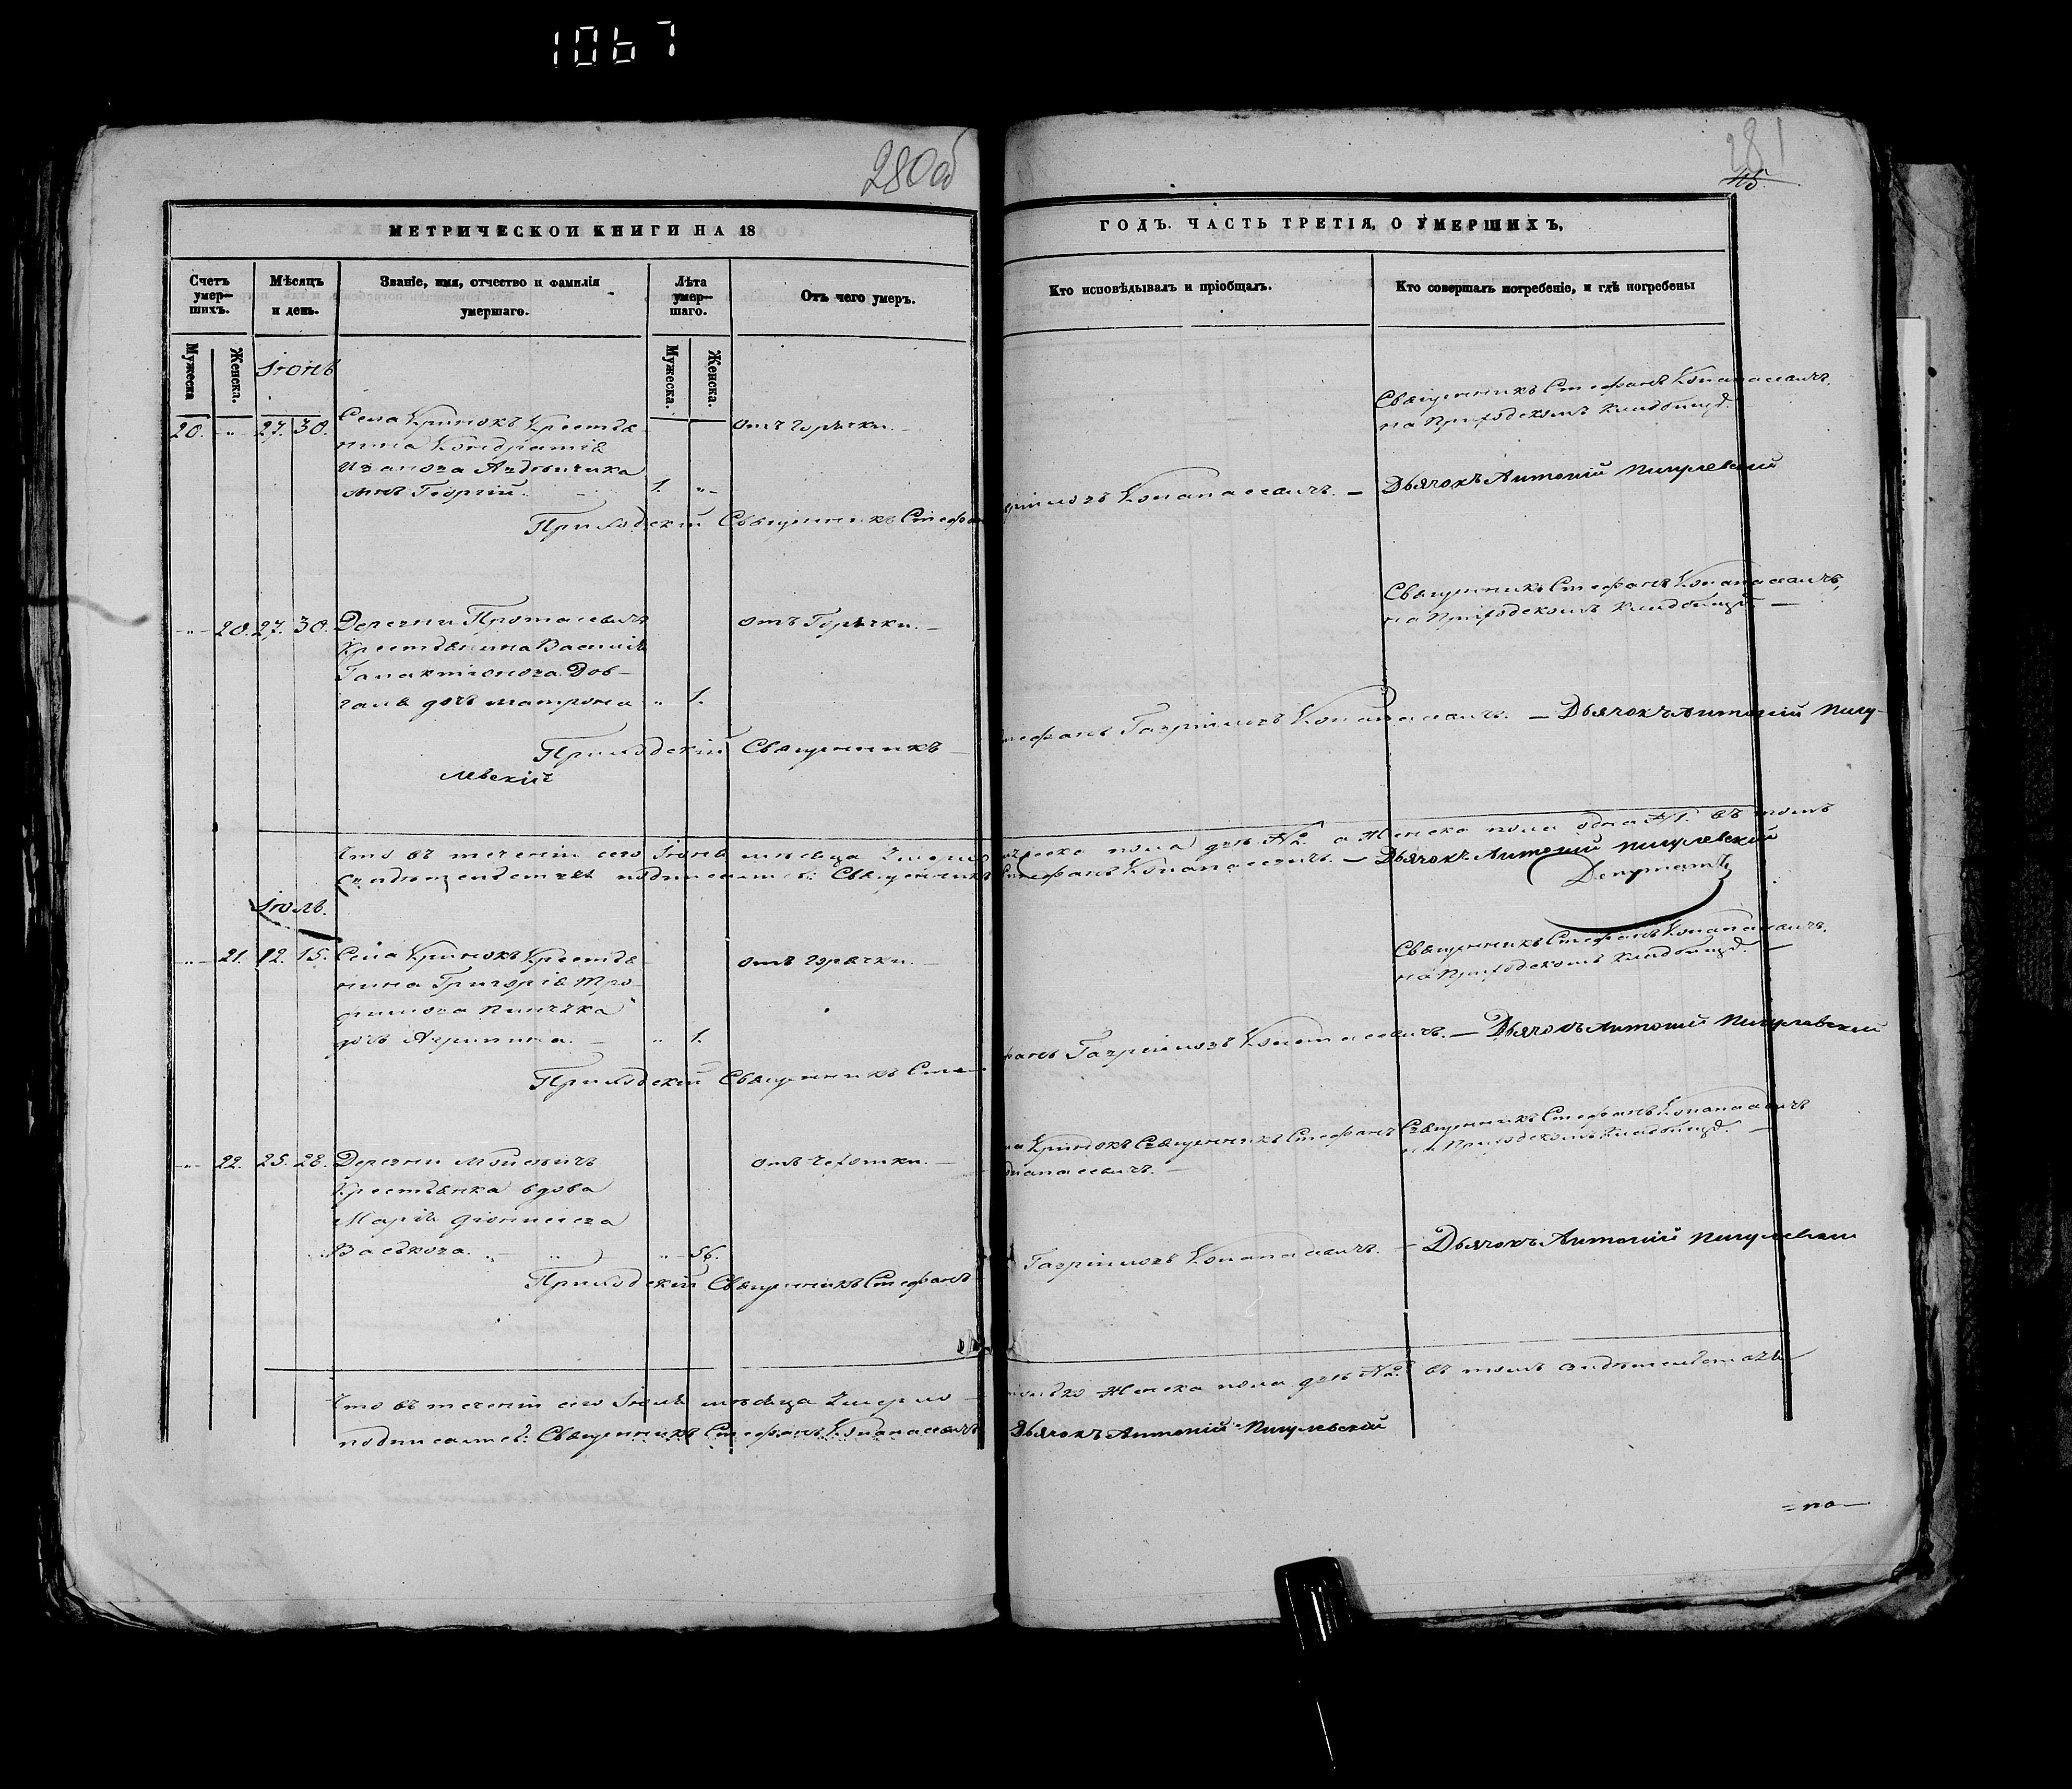 1067
280об
281
45
МЕТРИЧЕСКОИ КНИГИ НА 18
ГОДЪ. ЧАСТЬ ТРЕТІЯ, О УМЕРШИХЪ,
Счетъ умер—шихъ.
Мѣсяцъ и день.
Званіе, имя, отчество и фамилія умершаго.
Лѣта умер—шаго.
Отъ чего умеръ.
Кто исповѣдывалъ и пріобщалъ.
Кто совершалъ погребеніе, и гдѣ погребены
Мужеска
Женска.
Мужеска.
Женска.
Іюнь
20. 27. 30. Села Кринокъ Крестья
отъ горячки.
Священникъ Стефанъ Копанасевичъ
на Приходскомъ кладбищѣ.
нина Кондратія
Иванова
сынъ Георгій. 1.
Приходскій Священникъ Стефанъ
Копанасевичъ. — Дьячокъ Антоній Пигулевскій
20. 27. 30. Деревни Протасевичъ
отъ Горячки. —
Священникъ Стефанъ Копанасевичъ,
на Приходскомъ кладбищѣ —
Крестьянина Василія
Галактіонова Дов—
галя дочь Матрона 1.
Приходскій Священникъ —
Стефанъ Гавріиловъ Копанасевичъ. — Дьячокъ Антоній Пигу-
левскій
Что въ теченіи сего Іюня мѣсяца Умерло
мужеска пола два №2. а Женска пола одна №1. въ томъ
подписались: Священникъ Стефанъ Копанасевичъ. — Дьячокъ Антоній Пигулевскій
Депутатъ
Іюль.
21. 12. 15. Села Кринокъ Крестья
отъ горячки. —
Священникъ Стефанъ Копанасевичъ.
на Приходскомъ кладбищѣ. —
нина Григорія Тро
фимова
дочь Агрипина. — 1.
Приходскій Священникъ Сте—
фанъ Гавріиловъ Копанасевичъ. — Дьячокъ Антоній Пигулевскій
22. 25. 28. Деревни Мойсевичъ
отъ чехотки. —
Кринокъ Священникъ Стефанъ
Копанасевичъ. —
Священникъ Стефанъ Копанасевичъ
на Приходскомъ кладбищѣ. —
Крестьянка вдова
Марія Діонисіева
Васькова. 56.
Приходскій Священникъ Стефанъ
Гавріиловъ Копанасевичъ. — Дьячокъ Антоній Пигулевскій
Что въ теченіи сего Іюля мѣсяца Умерло —
только Женска пола двѣ №2. въ томъ свидѣтельствуя
подписались: Священникъ Стефанъ Копанасевичъ
Дьячокъ Антоній Пигулевскій
=по—